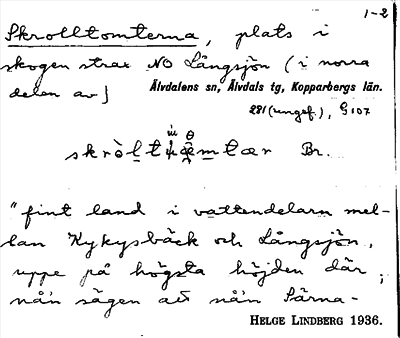 1-2
Skrolltomterna, plats i
skogen strax NO Långsjön (i norra
delen av)
Älvdalens sn, Älvdals tg, Kopparbergs län.
281 (ungef.), G 107
Br.
"fint land i vattendelarn mel-
lan Kykysbäck och Långsjön,
uppe på högsta höjden där;
nå'n sägen att nå'n Särna-
HELGE LINDBERG 1936.